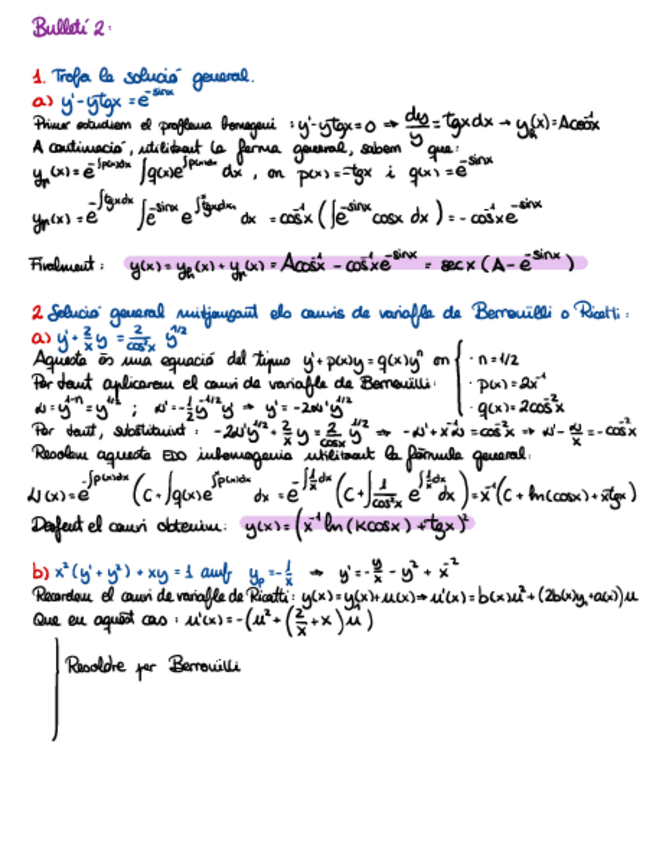 Bulletí 2:
1. Troba la solució general.
a) y' - ytgx = e^{-sinx}
Primer estudiem el problema homogeni : y' - ytgx = 0 ⇒ dy/y = tgx dx → y_h(x) = Acos^{-1}x
A continuació, utilitzant la forma general, sabem que:
y_p(x) = e^{-∫p(x)dx} ∫q(x)e^{∫p(x)dx} dx , on p(x) = -tgx i q(x) = e^{-sinx}
y_p(x) = e^{-∫tgxdx} ∫e^{-sinx} e^{∫tgxdx} dx = cos^{-1}x (∫e^{-sinx} cosx dx) = -cos^{-1}x e^{-sinx}
Finalment : y(x) = y_h(x) + y_p(x) = Acos^{-1}x - cos^{-1}x e^{-sinx} = secx (A - e^{-sinx})
2 Solució general mitjançant els canvis de variable de Bernouilli o Ricatti :
a) y' + 2/x y = 2/cos²x y^{1/2}
Aquesta és una equació del tipus y' + p(x)y = q(x)y^n on { · n = 1/2
Per tant aplicarem el canvi de variable de Bernouilli: · p(x) = 2x^{-1}
u = y^{1-n} = y^{1/2} ; u' = -1/2 y^{-1/2} y' ⇒ y' = -2u'y^{1/2} · q(x) = 2cos^{-2}x
Per tant, substituint : -2u'y^{1/2} + 2/x y = 2/cos²x y^{1/2} ⇒ -u' + x^{-1}u = cos^{-2}x ⇒ u' - u/x = -cos^{-2}x
Resolem aquesta EDO inhomogenia utilitzant la fórmula general:
u(x) = e^{-∫p(x)dx} (C + ∫q(x)e^{∫p(x)dx} dx = e^{-∫1/x dx} (C + ∫1/cos²x e^{∫1/x dx} dx) = x^{-1}(C + ln(cosx) + xtgx)
Desfent el canvi obtenim: y(x) = (x^{-1} ln(Kcosx) + tgx)²
b) x²(y' + y²) + xy = 1 amb y_p = -1/x ⇒ y' = -y/x - y² + x^{-2}
Recordem el canvi de variable de Ricatti: y(x) = y_1(x) + u(x) ⇒ u'(x) = b(x)u² + (2b(x)y_1 + a(x))u
Que en aquest cas : u'(x) = -(u² + (2/x + x)u)
Resoldre per Bernouilli